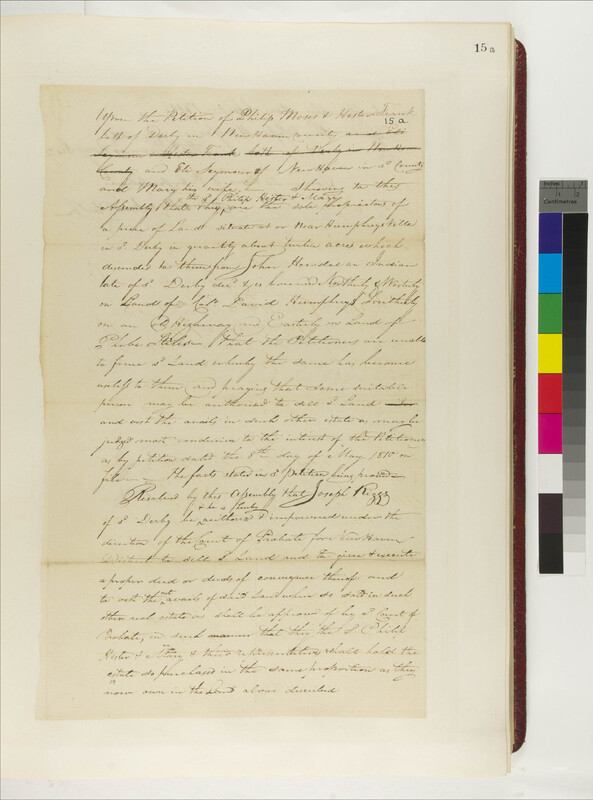 15 a
Upon the Petition of Philip Moses & Hester Frank
15 a
both of Derby in New Haven County and Eli
Seymour Hester Frank both of Derby in New Haven
County and Eli Seymour of New Haven in sd County
and Mary his wife Shewing to this
the sd Philip Hester & Mary
Assembly that they are the sole proprietors of
a piece of Land situate at or near Humphreysville
in sd Derby in quantity about twelve acres which
descended to them from John Howdee an Indian
late of sd Derby decd & is bounded Northerly & Westerly
on Land of Colo David Humphreys Southerly
on an Old Highway and Easterly on Land of
Phebe Stiles That the Petitioners are unable
to fence sd Land whereby the same has become
useless to them and praying that some suitable
person may be authorised to sell sd Land
and vest the avails in such other estate as may be
judged most conducive to the interest of the Petitioners
as by petition dated the 8th day of May 1810 on
file The facts stated in sd Petition being proved
Resolved by this Assembly that Joseph Riggs
& he is hereby
of sd Derby be authorised & impowered under the
direction of the Court of Probate for New Haven
District to sell sd Land and to give & execute
a proper deed or deeds of conveyance thereof and
to vest the avails of said Land when so sold in such
other real estate as shall be approved of by sd Court of
Probate, in such manner that they the sd Philip
Hester & Mary & their representatives shall hold the
estate so purchased in the same proportion as they
now own in the Land above described